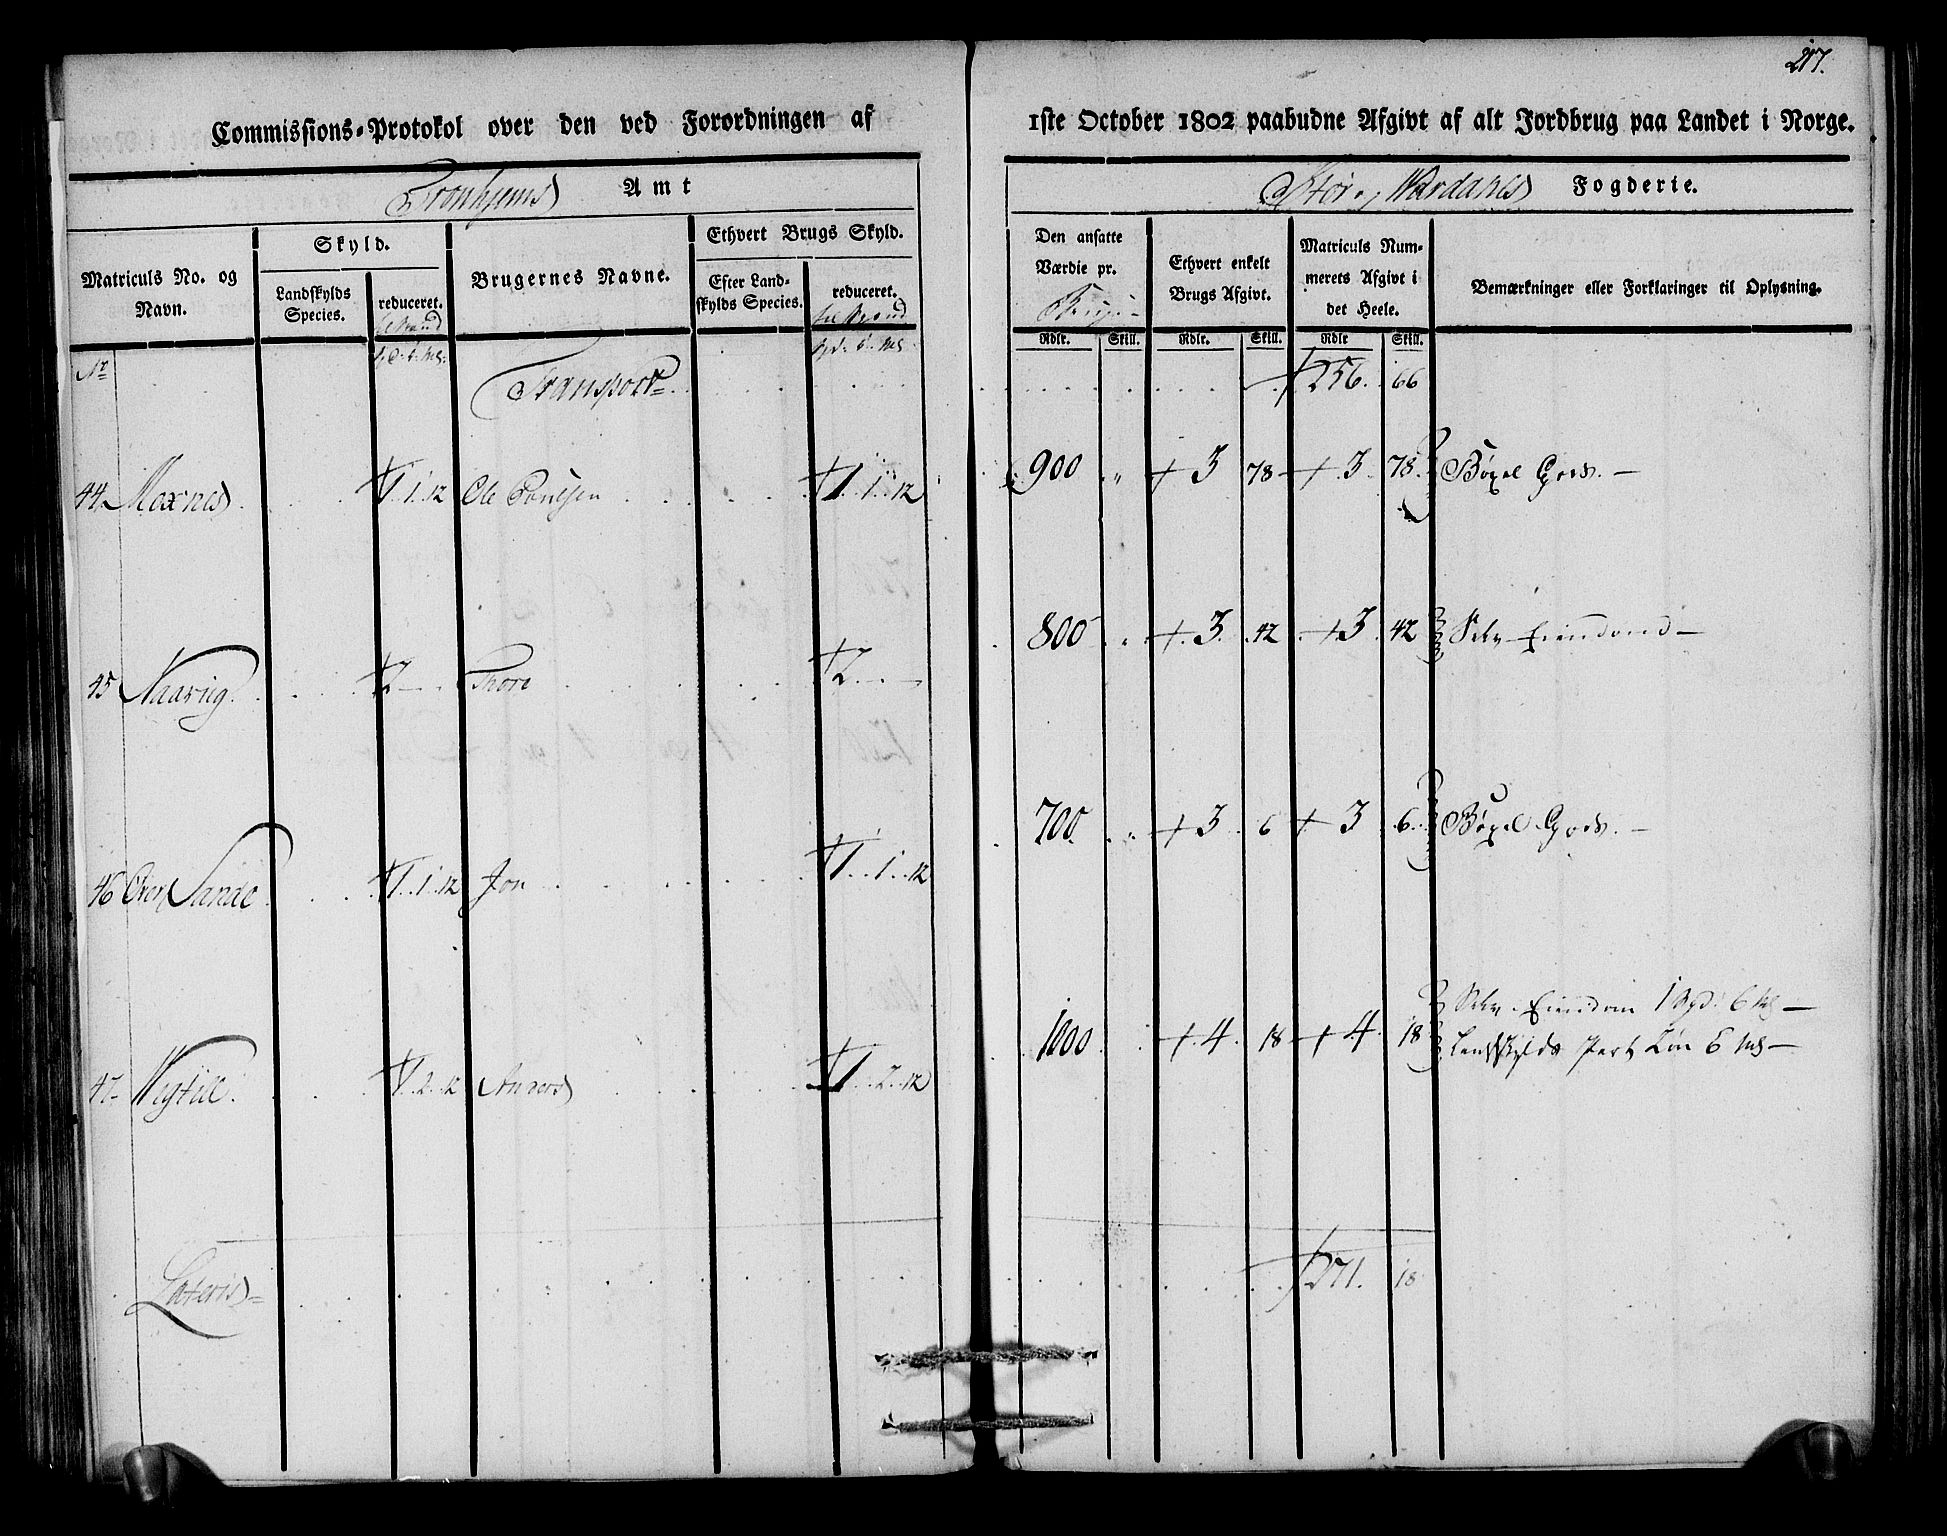 217.
Commissions-Protokol over den ved Forordningen af 1ste October 1802 paabudne Afgivt af alt Jordbrug paa Landet i Norge.
Tronhjems Amt
Stør- Værdahles Fogderie.
Matriculs No. og Navn.
Skyld.
Landskylds Species.
reduceret.
Brugernes Navne.
Ethvert Brugs Skyld.
Efter Landskylds Species.
reduceret.
Den ansatte Værdie pr. Brug
Ethvert enkelt Brugs Afgivt.
Matriculs Nummerets Afgivt i det Heele.
Bemærkninger eller Forklaringer til Oplysning.
Rdlr. Skill. Rdlr. Skill. Rdlr Skill.
No
Transport 256. 66
44 Moxnes 1. 1. 12 Ole 1. 1. 12 900 " 3 78 3 78 Bøxel Gods.
45 Naavug 2 Thore 2 800 " 3. 42 3 42 Selv Eiendom
46 Over Sande 1. 1. 12 Jon 1. 1. 12 700 " 3 6 3 6 Bøxel Gods.
47 1. 2. 12 Anders 1. 2. 12 1000 4 18 4 18 Selv Eiendom 1 Spd: 6 Mk
Landskylds Part 6 Mk
Lateris 271. 18